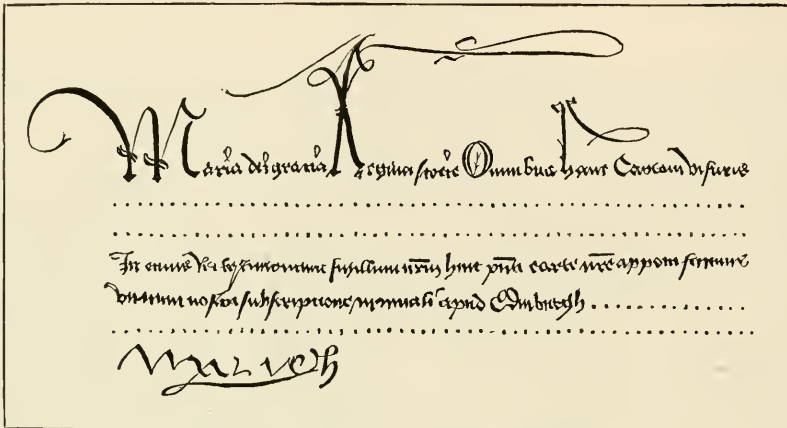 Maria dei gratia Regina scotie Omnibus hanc Cartam visuris
In cuius Rei testimonium sigillum nrm huic pnti carte nre apponi fecimus
vnacum nostra subscriptione manuali apud Edinburgh